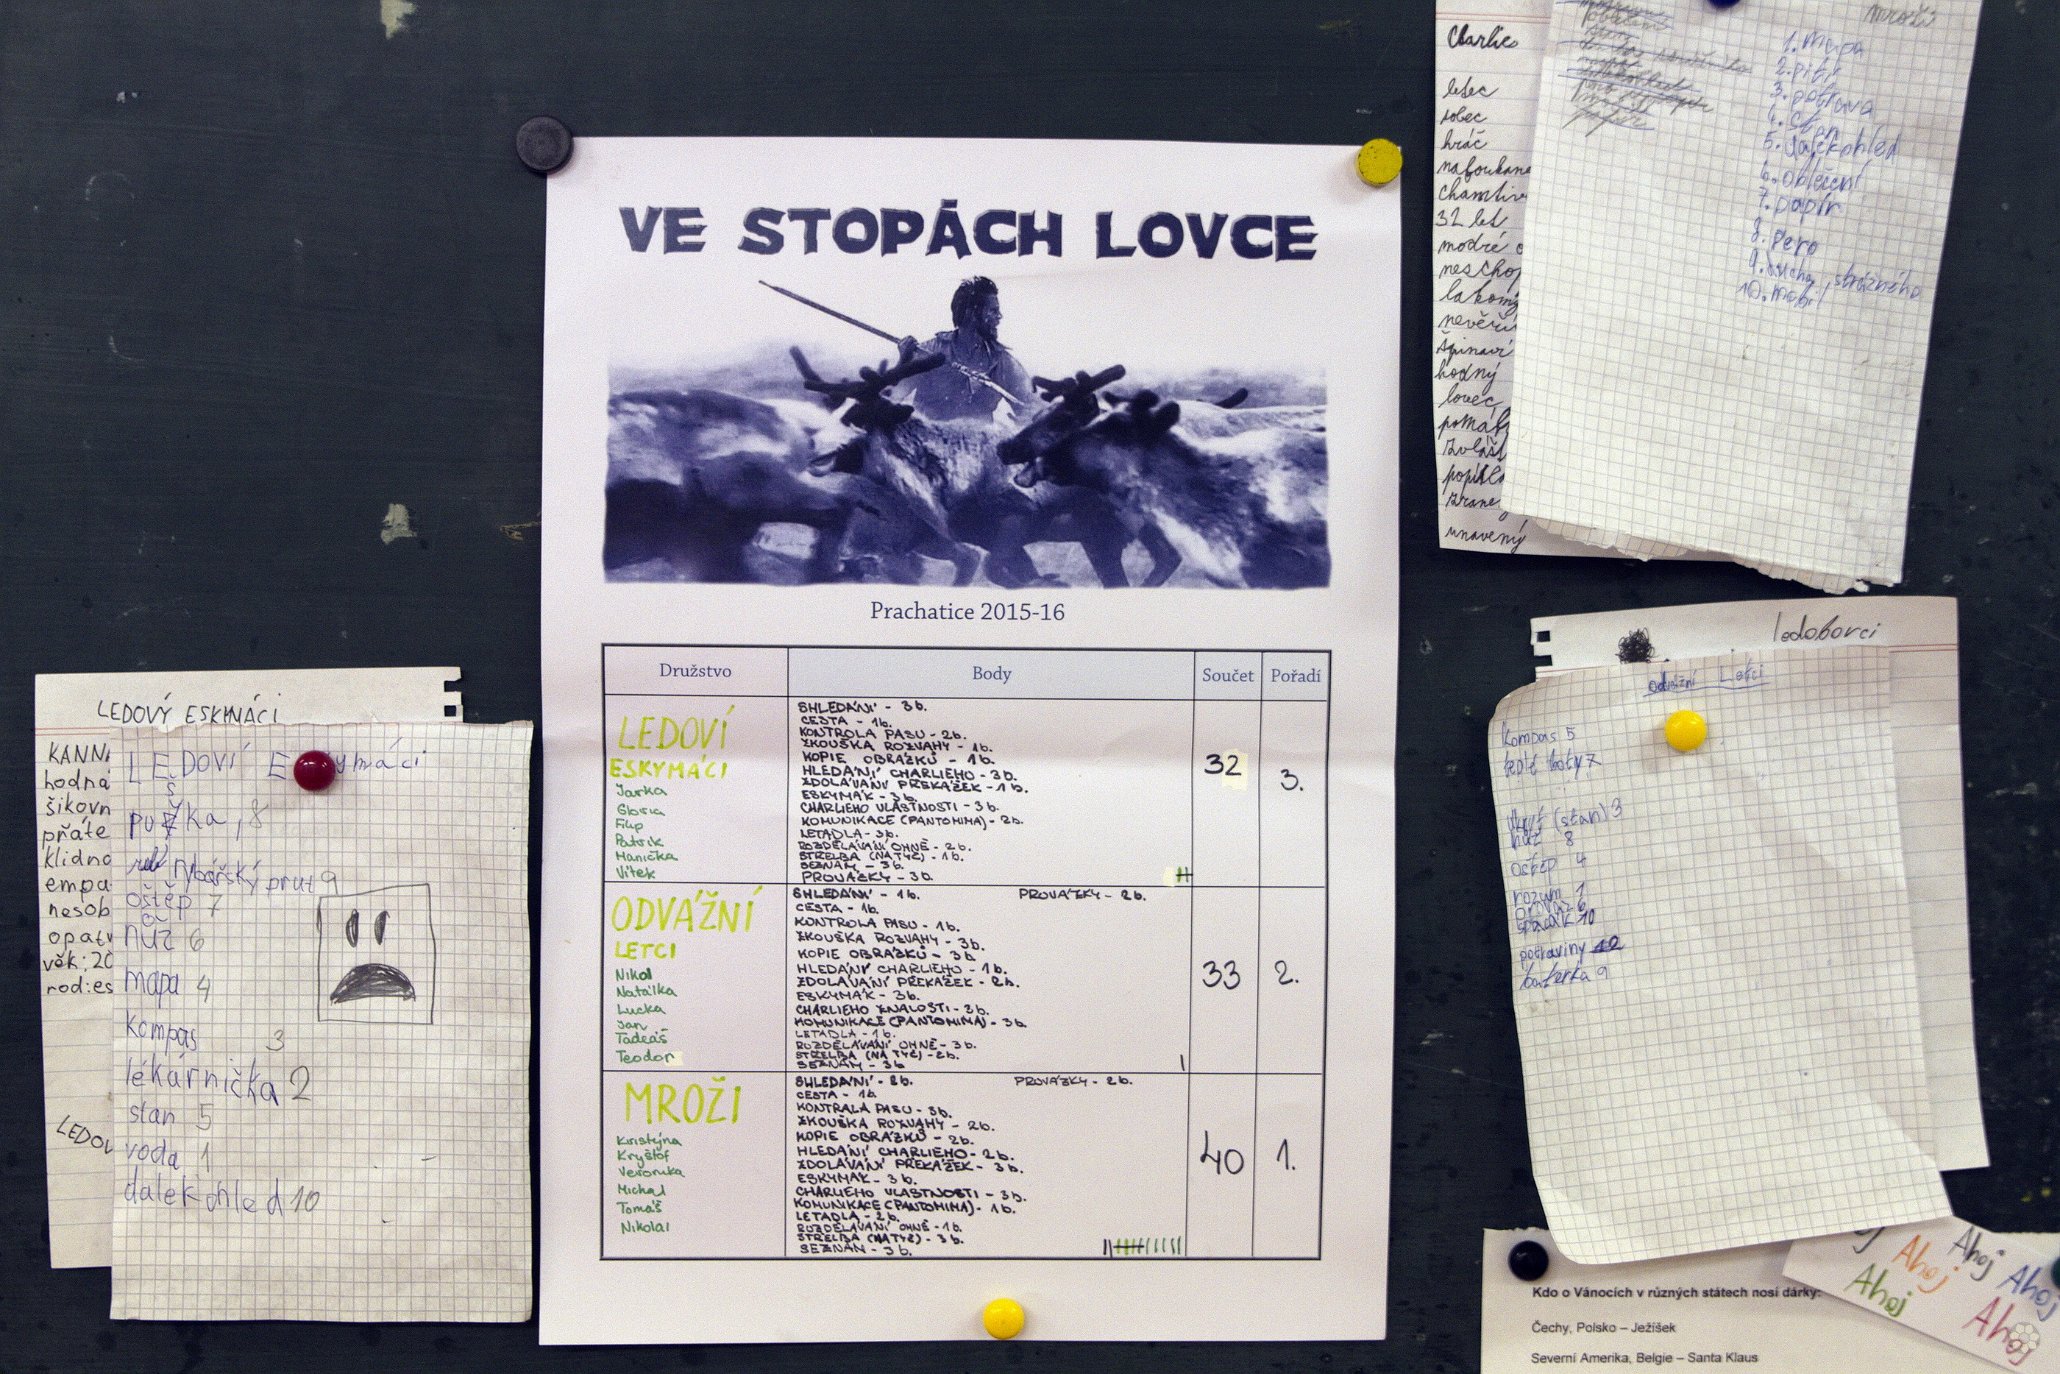 VE STOPÁCH LOVCE
Prachatice 2015-16
Družstvo Body Součet Pořadí
LEDOVÍ
ESKYMÁCI
Jarka
Gloria
Filip
Patrik
Hanička
Vítek
SHLEDÁNÍ - 3b.
CESTA - 1b.
KONTROLA PASU - 2b.
ZKOUŠKA ROZVAHY - 1b.
KOPIE OBRÁZKŮ - 1b.
HLEDÁNÍ CHARLIEHO - 3b.
ZDOLÁVÁNÍ PŘEKÁŽEK - 1b.
ESKYMÁK - 3b.
CHARLIEHO VLASTNOSTI - 3b.
KOMUNIKACE (PANTOMIMA) - 2b.
LETADLA - 3b.
ROZDĚLÁVÁNÍ OHNĚ - 2b.
STŘELBA (NA TYČ) - 1b.
SEZNAM - 3b.
PROVÁZKY - 3b.
32
3.
ODVÁŽNÍ
LETCI
Nikol
Natálka
Lucka
Jan
Tadeáš
Teodor
SHLEDÁNÍ - 1b. PROVÁZKY - 2b.
CESTA - 1b.
KONTROLA PASU - 1b.
ZKOUŠKA ROZVAHY - 3b.
KOPIE OBRÁZKŮ - 3b.
HLEDÁNÍ CHARLIEHO - 1b.
ZDOLÁVÁNÍ PŘEKÁŽEK - 2b.
ESKYMÁK - 3b.
CHARLIEHO ZNALOSTI - 3b.
KOMUNIKACE (PANTOMIMA) - 3b.
LETADLA - 1b.
ROZDĚLÁVÁNÍ OHNĚ - 3b.
STŘELBA (NA TYČ) - 2b.
SEZNAM - 3b
33
2.
MROŽI
Kristýna
Kryštof
Veronika
Michal
Tomáš
Nikolai
SHLEDÁNÍ - 2b. PROVÁZKY - 2b.
CESTA - 1b.
KONTRALA PASU - 3b.
ZKOUŠKA ROZVAHY - 2b.
KOPIE OBRÁZKŮ - 2b.
HLEDÁNÍ CHARLIEHO - 2b.
ZDOLÁVÁNÍ PŘEKÁŽEK - 3b.
ESKYMÁK - 3b.
CHARLIEHO VLASTNOSTI - 3b.
KOMUNIKACE (PANTOMIMA) - 1b.
LETADLA - 2b.
ROZDĚLÁVÁNÍ OHNĚ - 1b.
STŘELBA (NA TYČ) - 3b.
SEZNAM - 3b.
40
1.
LEDOVÝ ESKYMÁCI
KANN
hodná
šikovn
přáte
klidno
empa
nesob
opatr
věk: 20
rod: es
LEDOV
LEDOVÍ E ymáci
puška, 8
rybářský prut 9
oštěp 7
nůž 6
mapa 4
kompas 3
lékárnička 2
stan 5
voda 1
dalekohled 10
Charlie
letec
sobec
hráč
nafoukane
chamtiv
32 let
modré o
neschop
lakomý
nevěří
špinaví
hodný
lovec
pomáh
zvlášť
popíčlo
zrane
unavený
mroži
1. mapa
2. pití
3. potrava
4. stan
5. dalekohled
6. oblečení
7. papír
8. pero
9. strážného
10. mobil
ledoborci
odvážní Letci
kompas 5
teplé boty 7
(stan) 3
nůž 8
oštěp 4
rozum 1
provaz 6
spacák 10
potraviny
baterka 9
Kdo o Vánocích v různých státech nosí dárky:
Čechy, Polsko – Ježíšek
Severní Amerika, Belgie – Santa Klaus
Ahoj
Ahoj
Ahoj
Ahoj
Ahoj